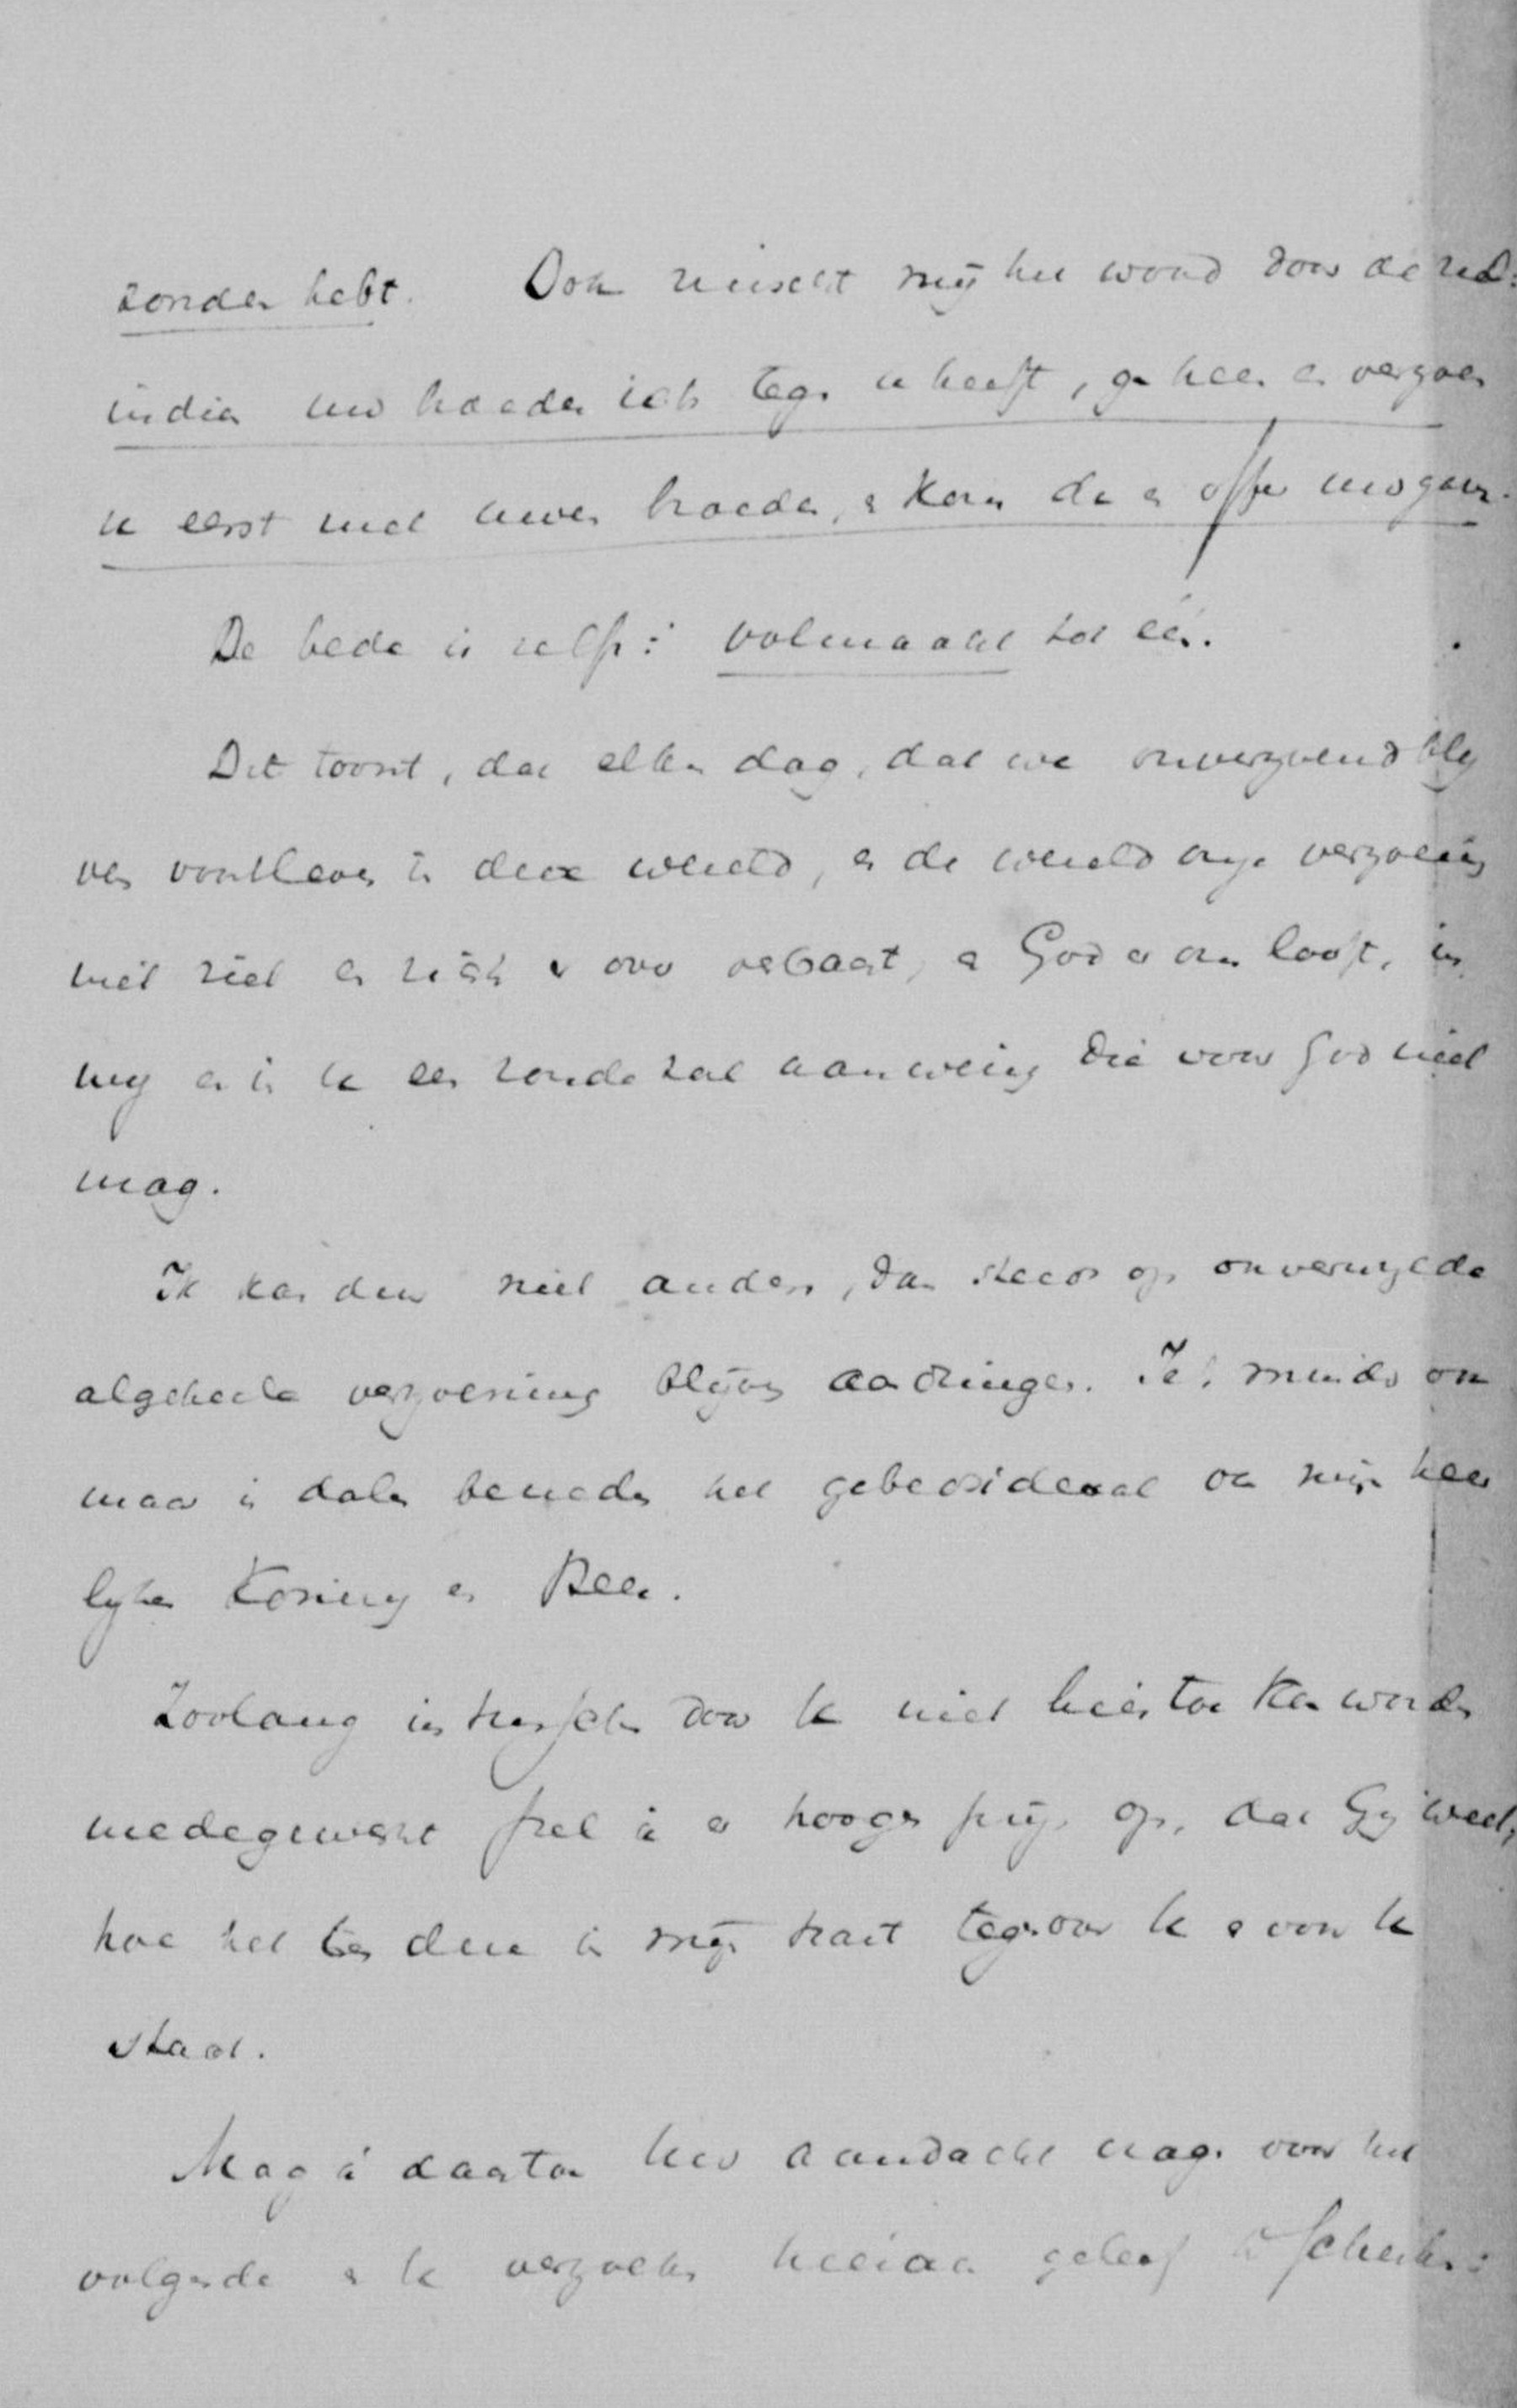 zonden hebt. Ook ruischt mij het woord door de ziel:
indien uw broeder iets tegen u heeft, ga heen en verzoen
u eerst met uwen broeder, en kom dan en offer uw gave.
De bede is zelfs: volmaakt tot één.
Dit toont, dat elken dag, dat we onverzoend blij
ven voortleven in deze wereld, en de wereld onze verzoening
niet ziet en zich er over verbaast, en God er om looft, in
mij en in u een zonde zal aanwezig die voor God niet
mag.
Ik kan dan niet anders, dan steeds op onverwijlde
algeheele verzoening blijven aandringen. Iets minder
maar is dalen beneden het gebedsideaal van mijn heer
lijken Koning en Heer.
Zoolang intusschen door u niet hiertoe kan worden
medegewerkt stel ik er hoogen prijs op, dat Gij weet,
hoe het ten deze in mijn hart tegenover u en voor u
staat.
Mag ik daartoe Uw aandacht vragen voor het
volgende en u verzoeken hieraan geloof te schenken: